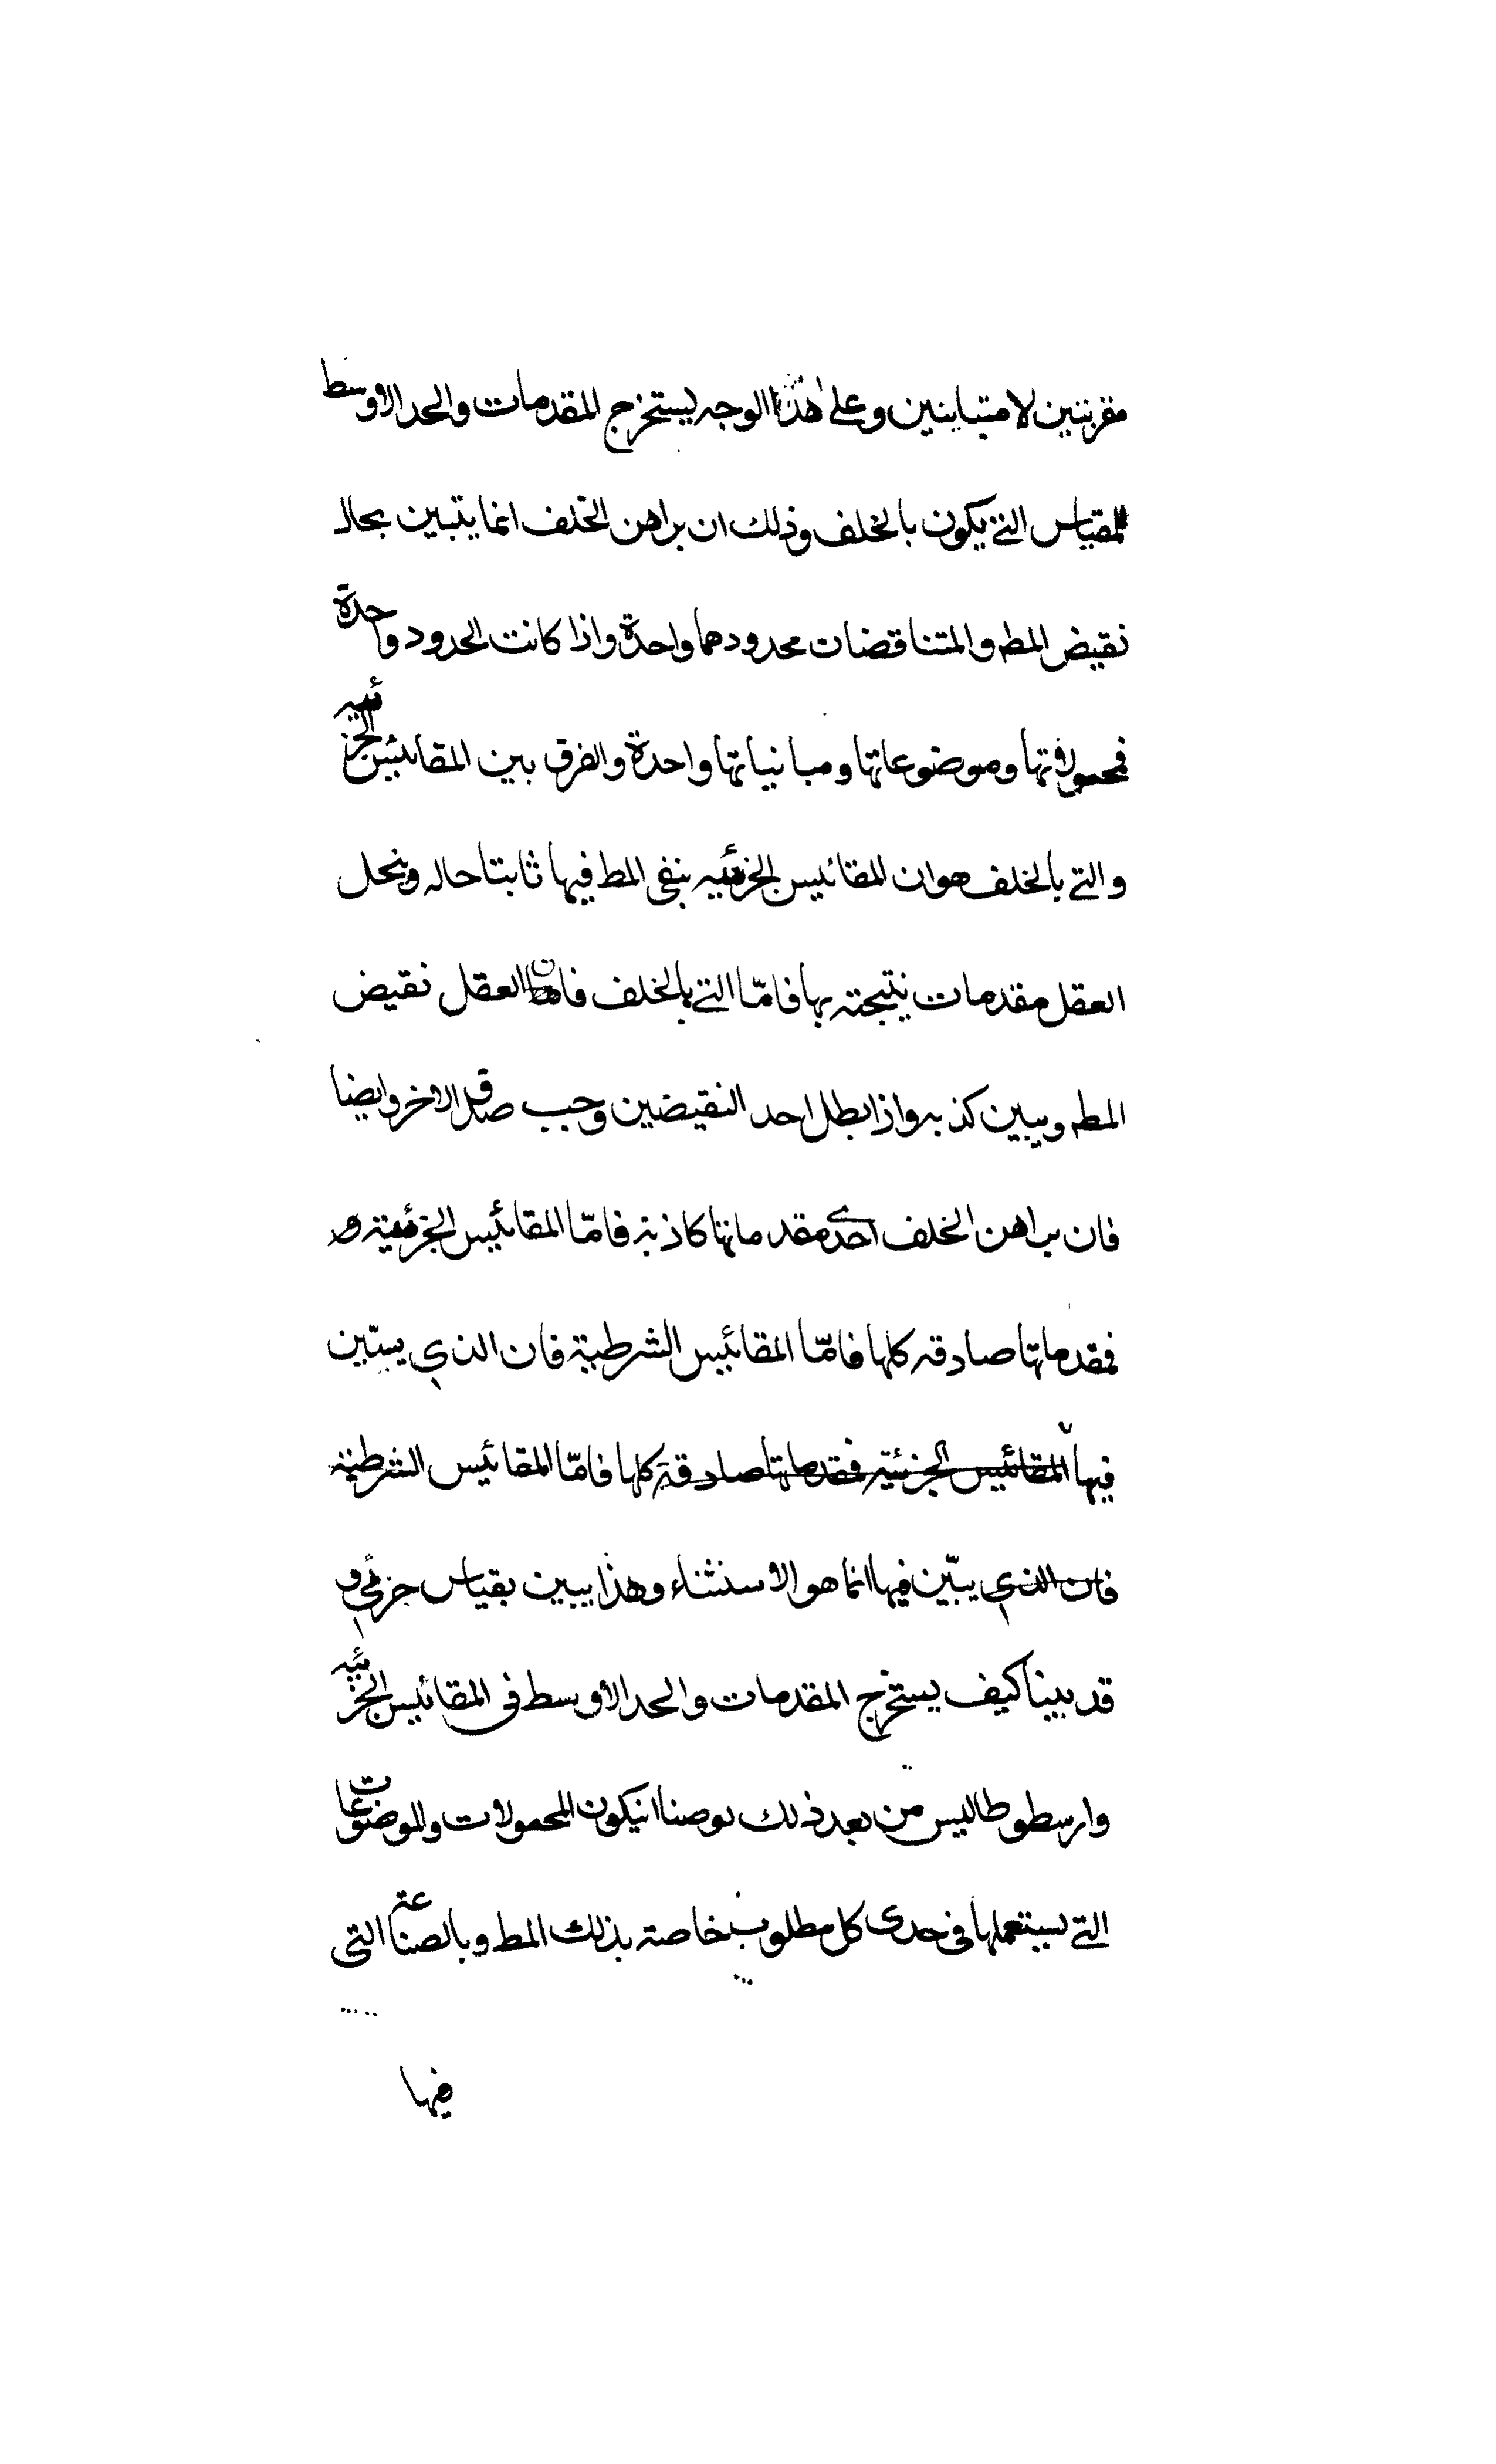 مقربتين لا متباينين وعلى هذا الوجه يستخرج المقدمات والحد الاوسط
للمقياس التى يكون بالخلف وذلك ان براهن الخلف انما يتبين بحال
نقيض المط والمتناقضات محدودهما واحدة واذا كانت الحدود واحدة
فمحمولاتها وموضوعاتها ومبانياتها واحدة والفرق بين المقائيس الجزئيه
والتى بالخلف هو ان المقائيس الجزئيه ينفى المط فيها ثابتا حاله وينحل
العقل مقدمات نتيجته بها فامّا التى بالخلف فان العقل نقيض
المط ويبين كذبه واذا بطل احد النقيضين وجب صدق الاخر وايضا
فان براهن الخلف احدى مقدماتها كاذبة فامّا المقائيس الجزئية و
فمقدماتها صادقه كلها فامّا المقائيس الشرطية فان الذي يبيّن
فيها المقائيس الجزئيه فمقدماتها صادقة كلها فامّا المقائيس الشرطية
فان الذي يبيّن فيها انما هو الاستثناء وهذا يبين بقياس جزئي و
قد بينا كيف يستخرج المقدمات والحد الأوسط فى المقائيس الجزئيه
وارسطوطاليس من بعد ذلك يوصنا انيكون المحمولات والموضوعات
التى يستعملها فى حدى كل مطلوب خاصة بذلك المط وبالصناعة التى
فيها